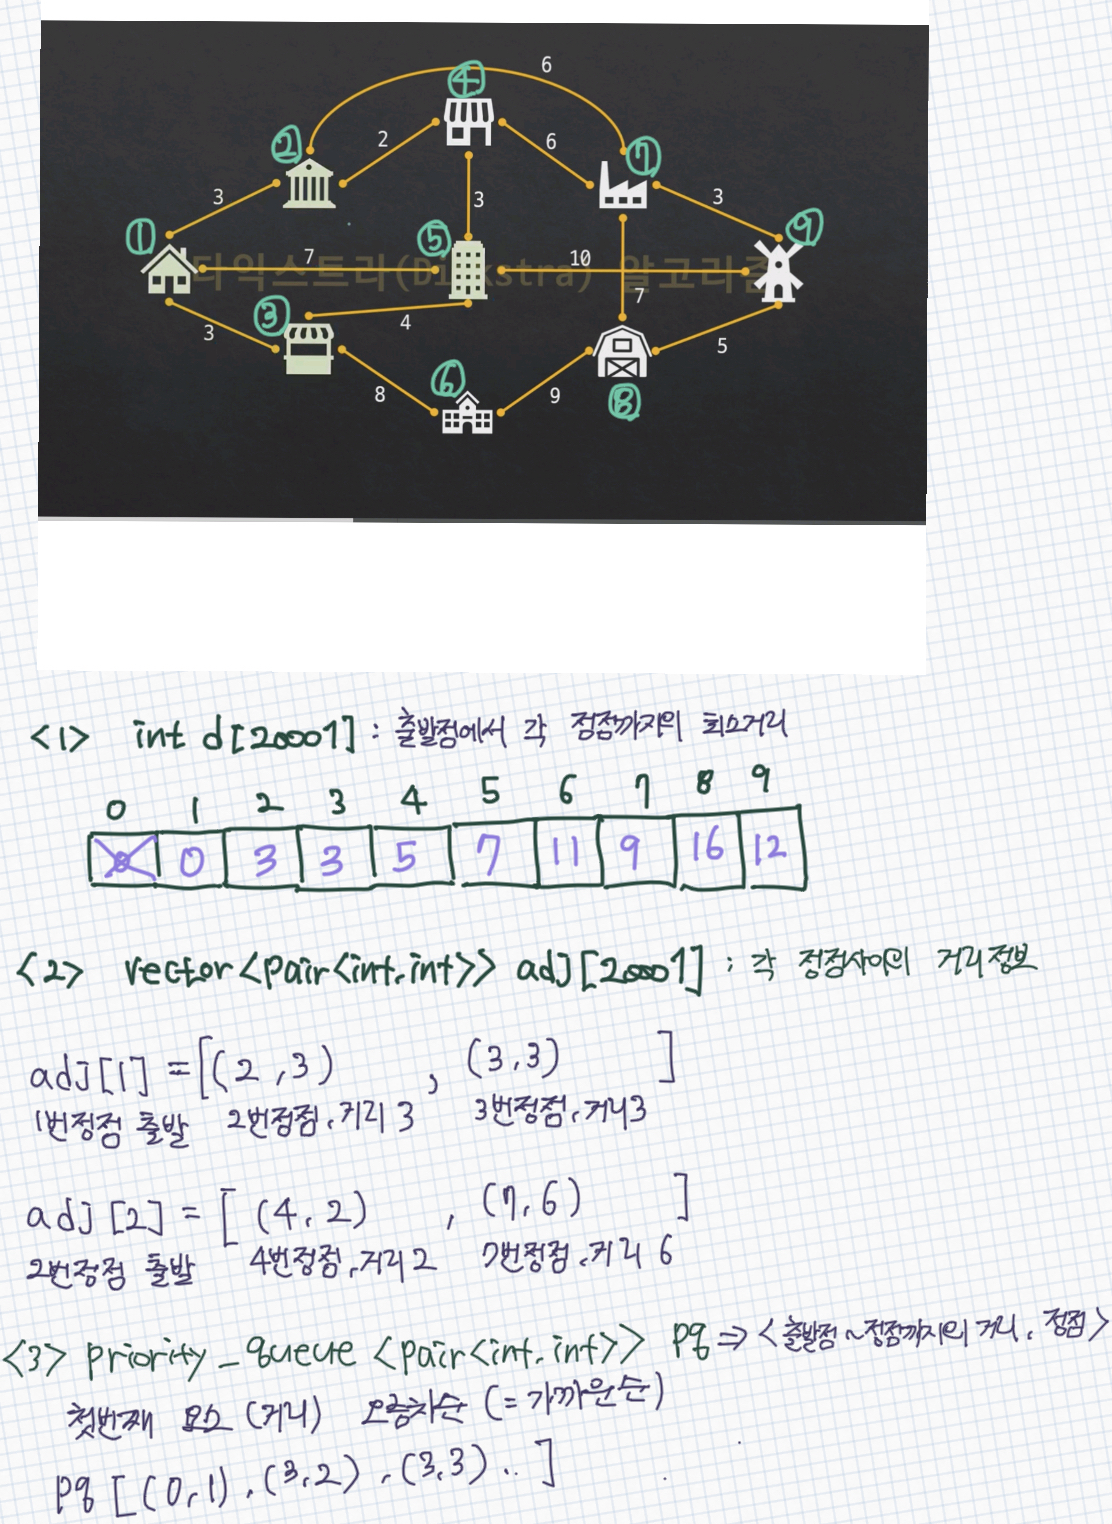 6
④
② 2 6 ⑦
3 3 3
① ⑤ ⑨
7 10
다익스트라(Dijkstra) 알고리즘
③ 7
3 4 5
⑥
8 9 ⑧
<1> int d[20001] : 출발점에서 각 정점까지의 최소거리
0 1 2 3 4 5 6 7 8 9
0 0 3 3 5 7 11 9 16 12
<2> vector<pair<int,int>> adj[20001] : 각 정점사이의 거리정보
adj[1] = [(2,3) , (3,3) ]
1번정점 출발 2번정점,거리 3 3번정점,거리3
adj[2] = [ (4,2) , (7,6) ]
2번정점 출발 4번정점,거리 2 7번정점,거리 6
<3> priority_queue <pair<int,int>> pq ⇒ <출발점~정점까지의 거리, 정점>
첫번째 요소 (거리) 오름차순 (= 가까운순)
pq [ (0,1) , (3,2) , (3,3) .. ]